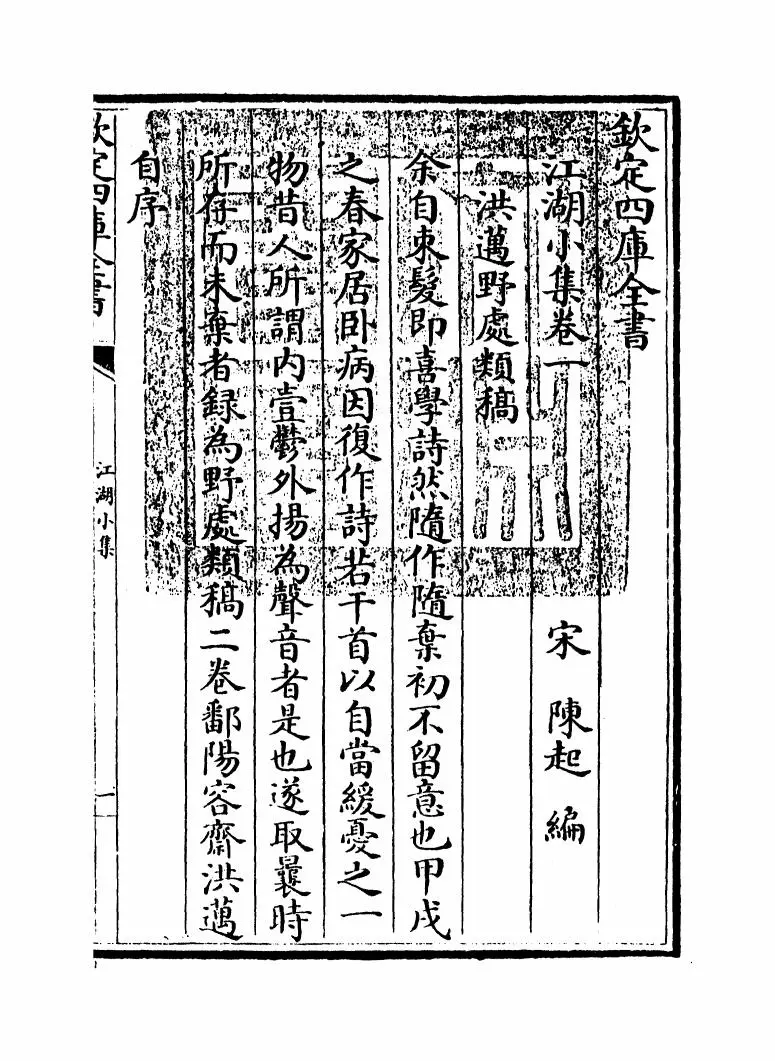 欽定四庫全書
江湖小集卷一
宋 陳起 編
洪邁野處類稿
余自束髮即喜學詩然隨作隨棄初不留意也甲戌
之春家居卧病因復作詩若干首以自當緩憂之一
物昔人所謂内壹鬱外揚為聲音者是也遂取曩時
所存而未棄者録為野處類稿二卷鄱陽容齋洪邁
自序
欽定四庫全書
江湖小集
一